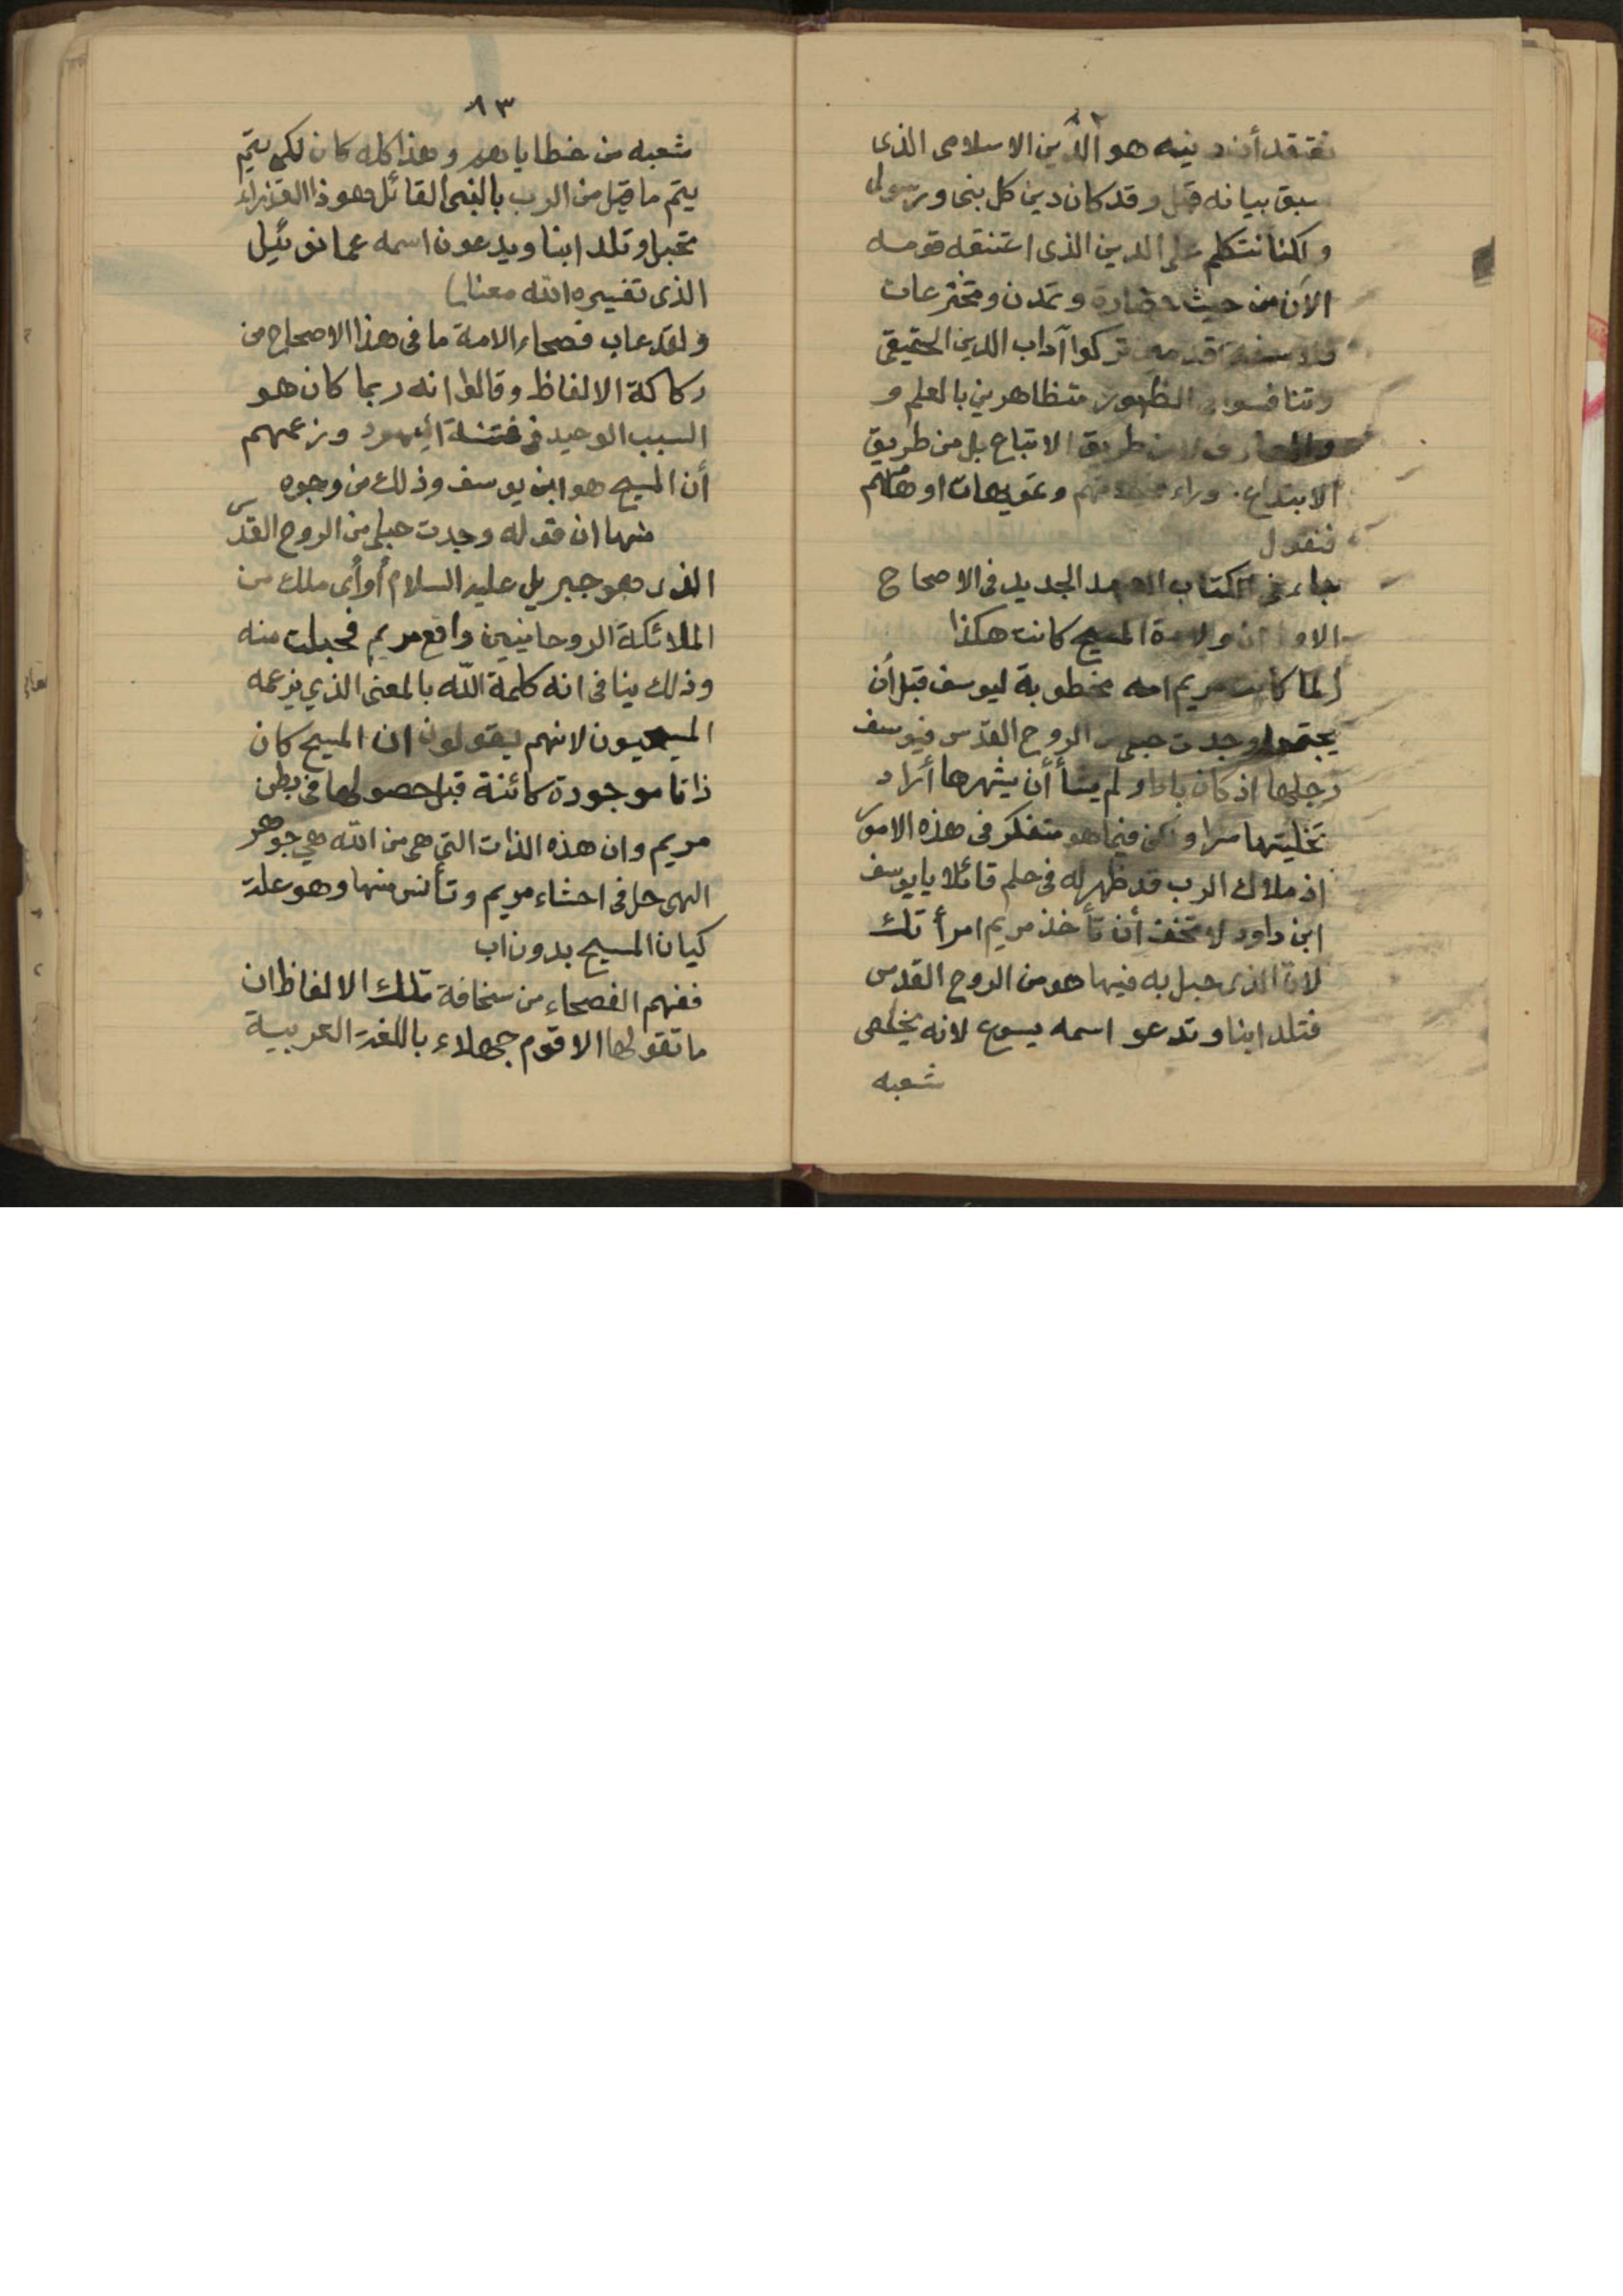 ٨٢
نعتقد أن دينه هو الدين الاسلامى الذى
سبق بيانه قبل وقد كان دين كل نبى ورسول
ولكنا نتكلم على الدين الذى اعتنقه قومه
الآن من حيث حضارة وتمدن ومخترعات
تركوا آداب الدين الحقيقى
وتنافسوا فى الظهور متظاهرين بالعلم و
والمعارف لا من طريق الاتباع بل من طريق
الابتداع وراء وتمويهات اوهامهم
فنقول
جاء فى الكتاب العهد الجديد فى الاصحاح
الاول ان ولادة المسيح كانت هكذا
(لما كانت مريم امه مخطوبة ليوسف قبل أن
يجتمعا وجدت حبلى من الروح القدس فيوسف
رجلها اذ كان بارا ولم يشأ أن يشهرها أراد
تخليتها سرا ولكن فيما هو متفكر فى هذه الامور
اذ ملاك الرب قد ظهر له فى حلم قائلا يا يوسف
ابن داود لا تخف أن تأخذ مريم امرأتك
لان الذى حبل به فيها هو من الروح القدس
فتلد ابنا وتدعو اسمه يسوع لانه يخلص
شعبه
٨٣
شعبه من خطاياهم وهذا كله كان لكى يتم
يتم ما قيل من الرب بالنبى القائل هوذا العذراء
تحبل وتلد ابنا ويدعون اسمه عمانوئيل
الذى تفسيره الله معنا)
ولقد عاب فصحاء الامة ما فى هذا الاصحاح من
ركاكة الالفاظ وقالوا انه ربما كان هو
السبب الوحيد فى فتنة اليهود وزعمهم
أن المسيح هو ابن يوسف وذلك من وجوه
منها ان قوله وجدت حبلى من الروح القدس
الذى هو جبريل عليه السلام أو أى ملك من
الملائكة الروحانيين واقع مريم فحبلت منه
وذلك ينافى انه كلمة الله بالمعنى الذي يزعمه
المسيحيون لانهم يقولون ان المسيح كان
ذاتا موجودة كائنة قبل حصولها فى بطن
مريم وان هذه الذات التى هى من الله هي جوهر
الهى حل فى احشاء مريم وتأنس منها وهو علة
كيان المسيح بدون اب
ففهم الفصحاء من سخافة تلك الالفاظ ان
ما تقولها الا قوم جهلاء باللغة العربية